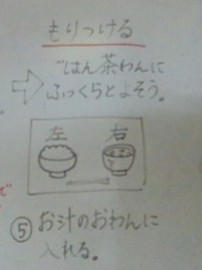 もりつける
ごはん茶わんに
ふっくらとよそう。
左 右
⑤お汁のおわんに
入れる。